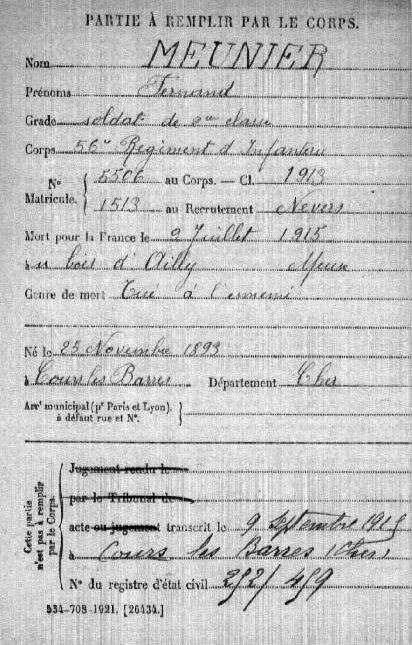 PARTIE À REMPLIR PAR LE CORPS.
Nom MEUNIER
Prénoms Fernand
Grade soldat de 2me classe
Corps 56e Régiment d'Infanterie
Nos Matricule. { 5506 au Corps. — Cl. 1913
1513 au Recrutement Nevers
Mort pour la France le 2 Juillet 1915
à au bois d'Ailly Meuse
Genre de mort Tué à l'ennemi
Né le 23 Novembre 1893
à Cours les Barres Département Cher
Arrt municipal (pr Paris et Lyon), à défaut rue et No. }
Cette partie n'est pas à remplir par le Corps.
Jugement rendu le
par le Tribunal de
acte ou jugement transcrit le 9 septembre 1915
à Cours les Barres (Cher)
No du registre d'état civil
534-708-1921. [26434.]